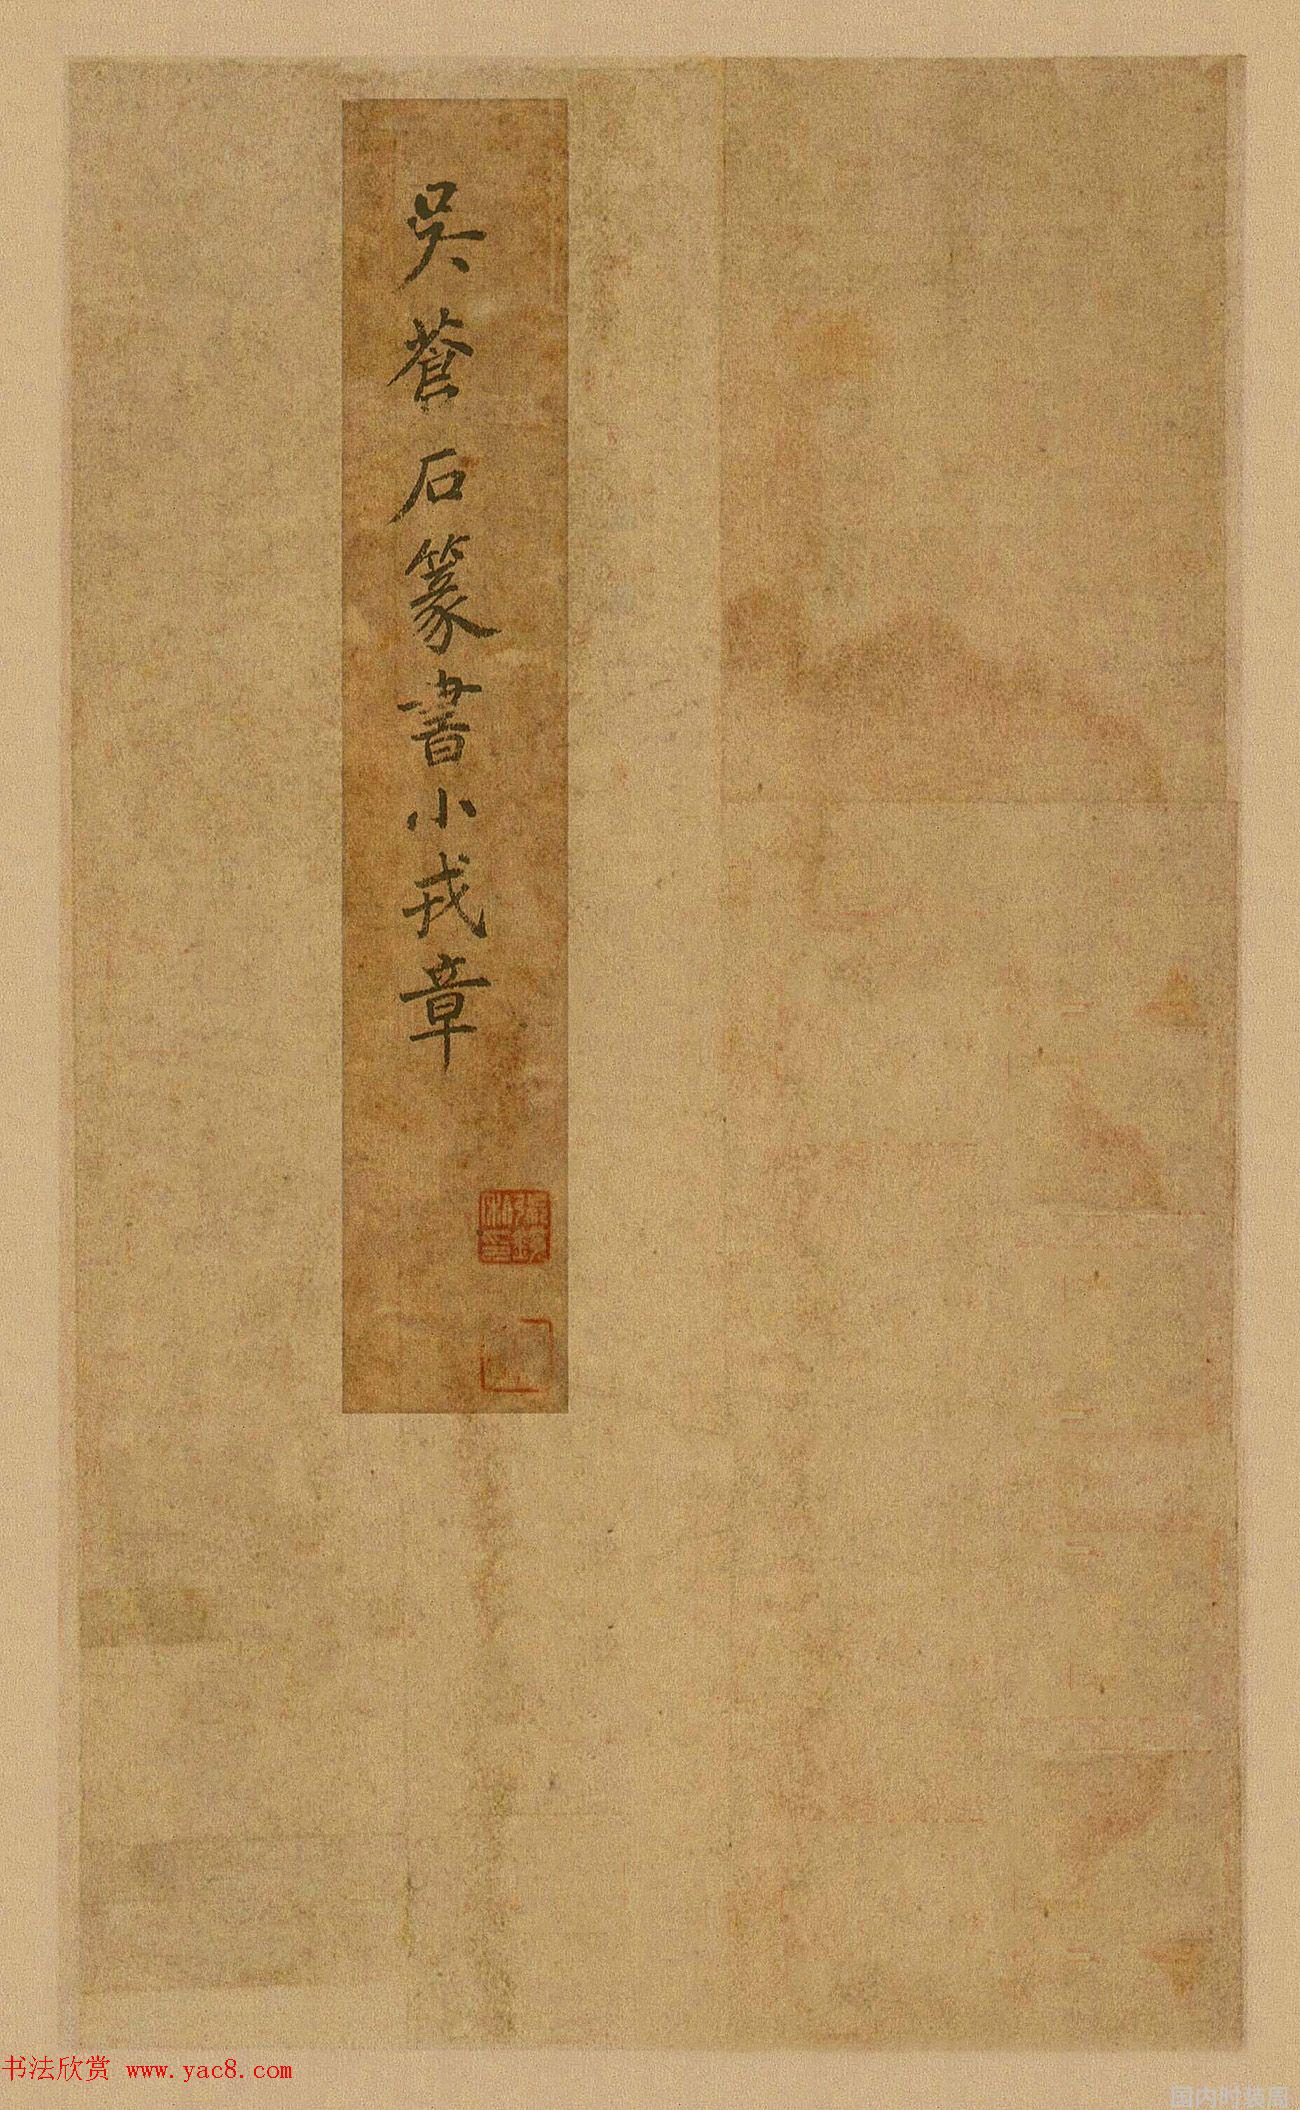 吳蒼石篆書小戎章
书法欣赏 www.yac8.com
国内时装周